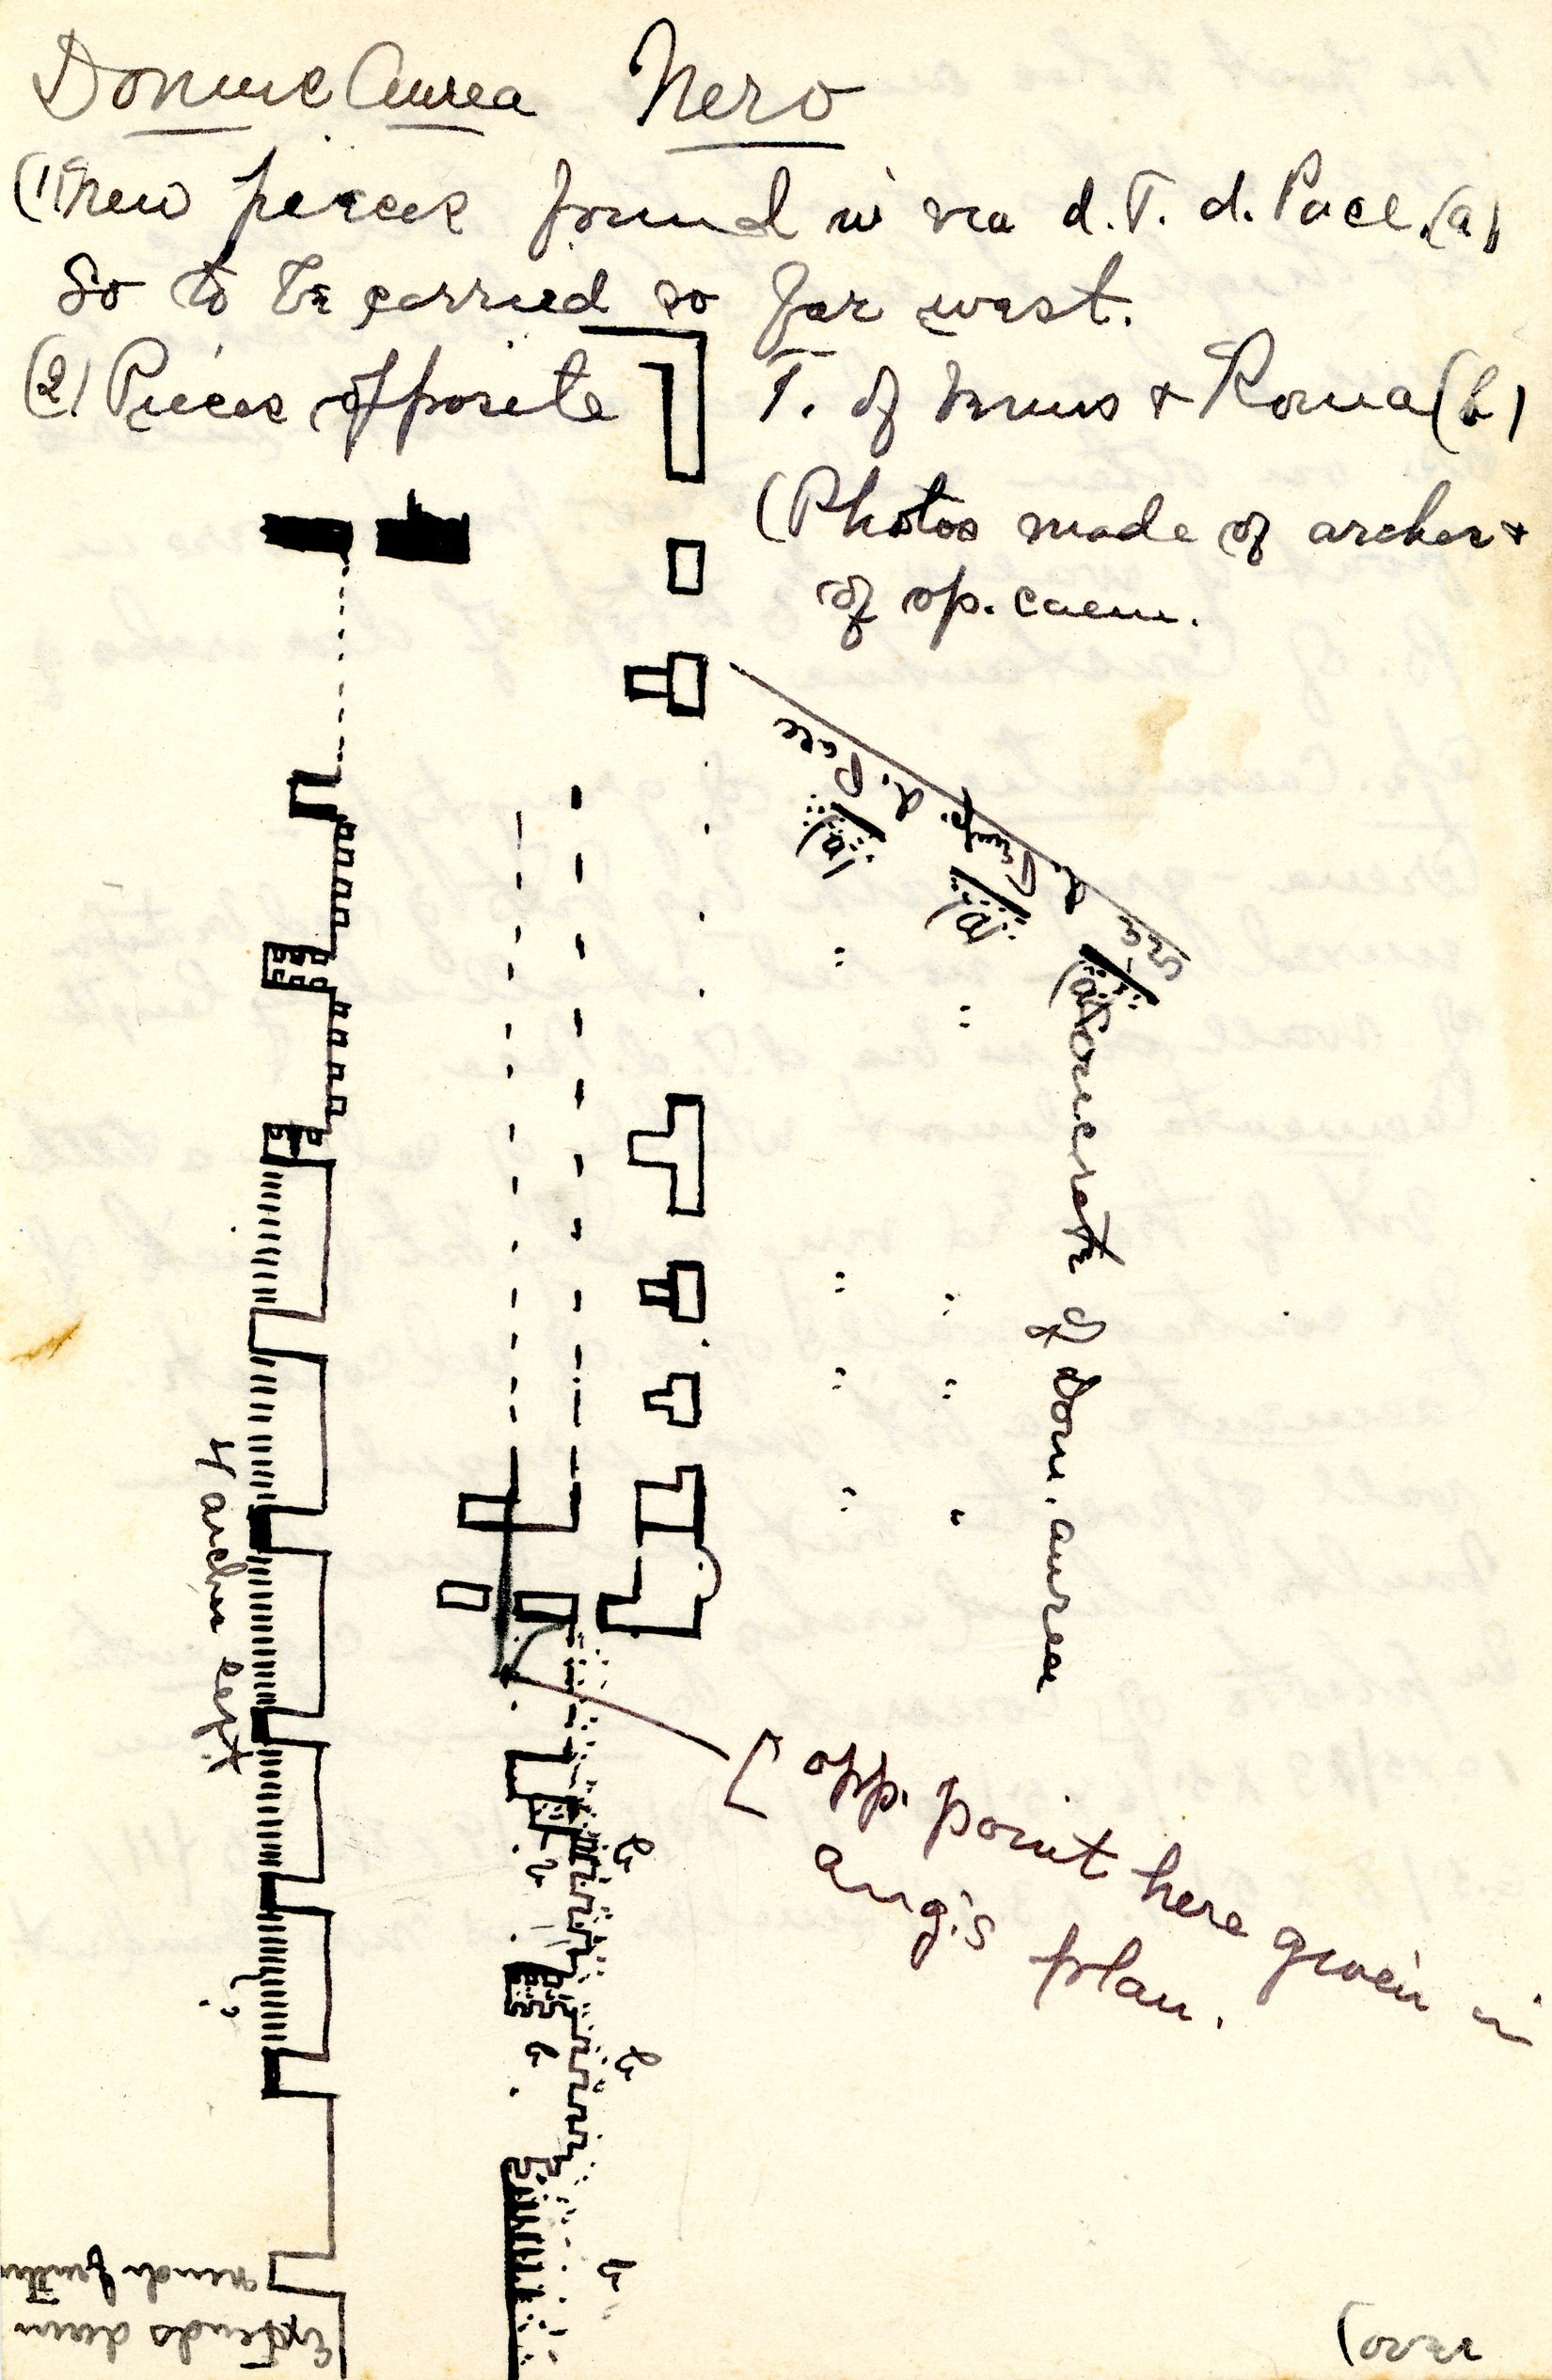 Domus Aurea Nero
(1) new pieces found in via d. T. d. Pace. (a)
So to be carried so far west.
(2) Pieces opposite T. of Venus & Roma (b)
(Photos made of arches &
of op. caem.
via d. Temp. d. Pace
(a)
(a)
(a) Concrete of Dom. aurea
4 arches
opp. point here given in
ang's plan.
b
b
b
b
b
Extends down
(over